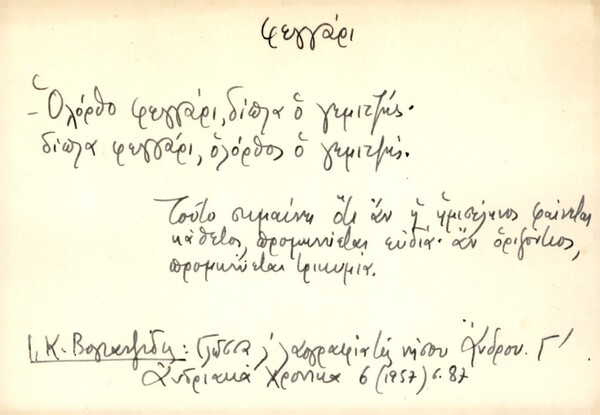 φεγγάρι
– Ὁλόρθο φεγγάρι, δίπλα ὁ γεμιτζής·
δίπλα φεγγάρι, ὁλόρθος ὁ γεμιτζής.
Τοῦτο σημαίνει ὅτι ἄν ἡ ἡμισέληνος φαίνεται
κάθετος, προμηνύεται εὐδία· ἄν ὁριζόντιος,
προμηνύεται τρικυμία.
Ι. Κ. Βογιατζίδης: Γλῶσσα κ' λαογραφία τῆς νήσου Ἄνδρου. Γ'
Ἀνδριακά Χρονικά 6 (1957) σ. 87